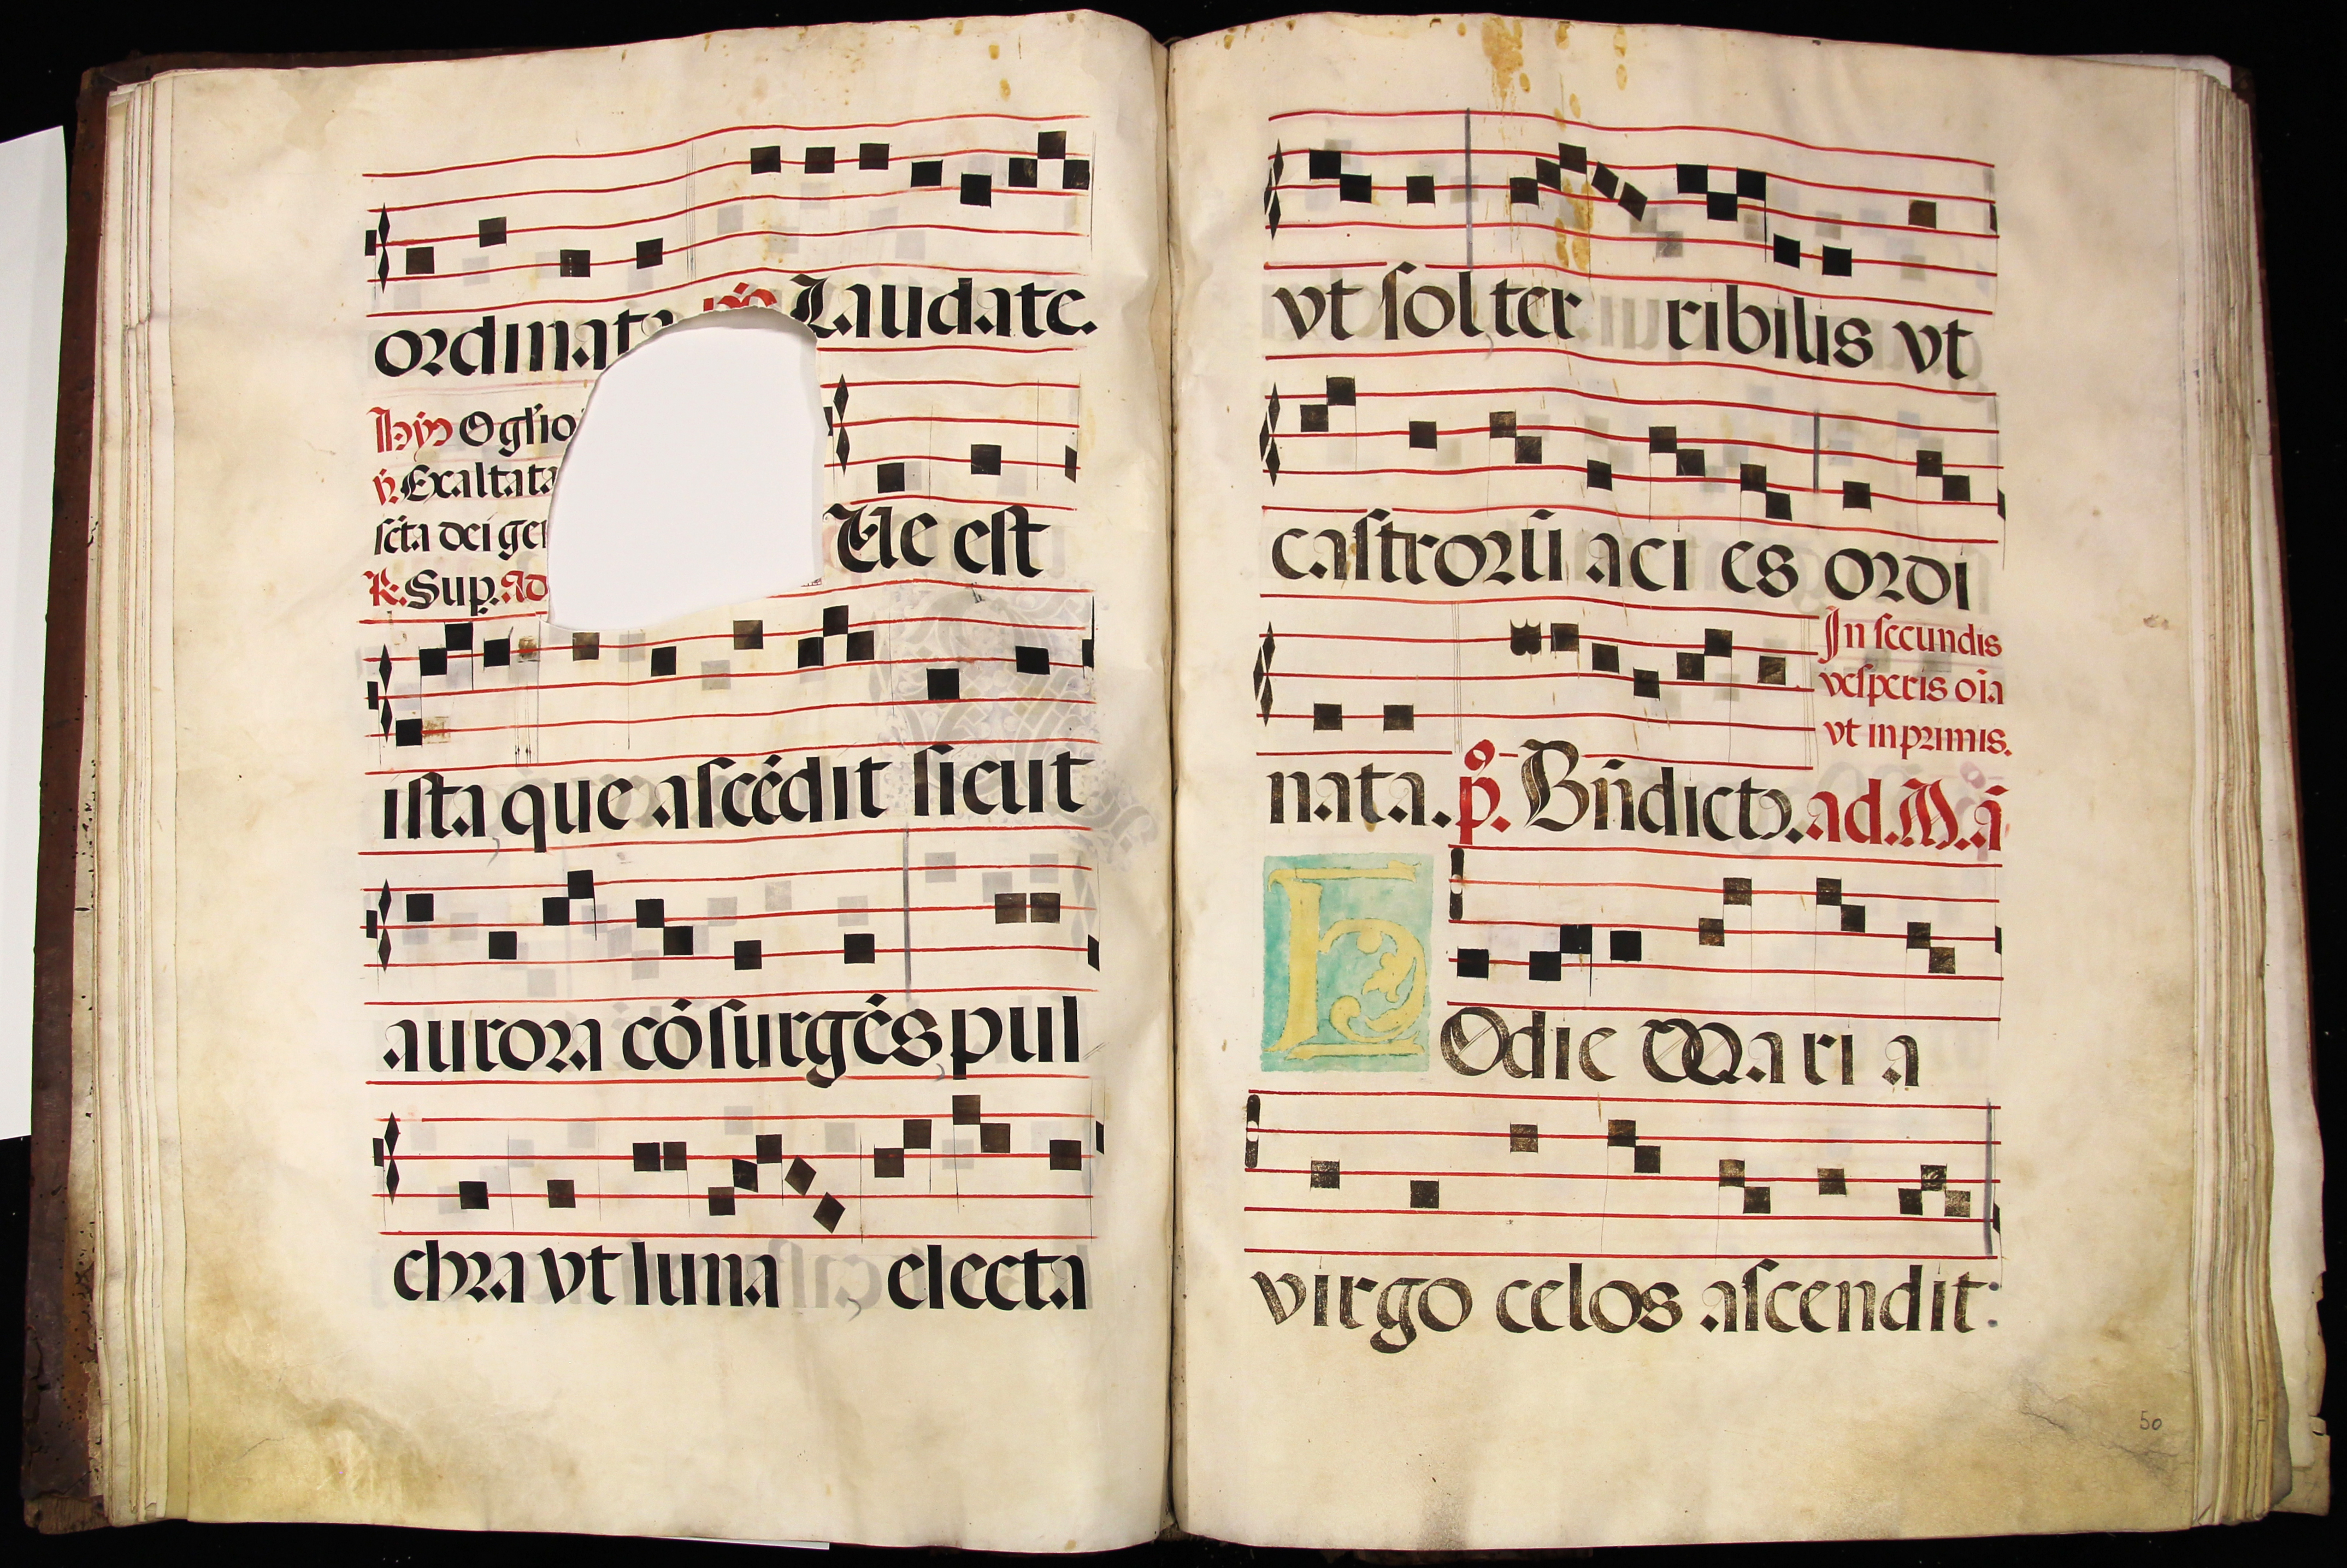 ordinata ps Laudate.
hyn O glio
v. Exaltata
scta dei gen
R. Sup. Ad
Ue est
ista que ascēdit sicut
aurora cōsurgēs pul
chra vt luna electa
vt sol ter ribilis vt
castrorū aci es ordi
In secundis
vesperis oīa
vt in primis.
nata. ps. Bn̄dicto. ad. Mā
hOdie Maria
virgo celos ascendit:
50